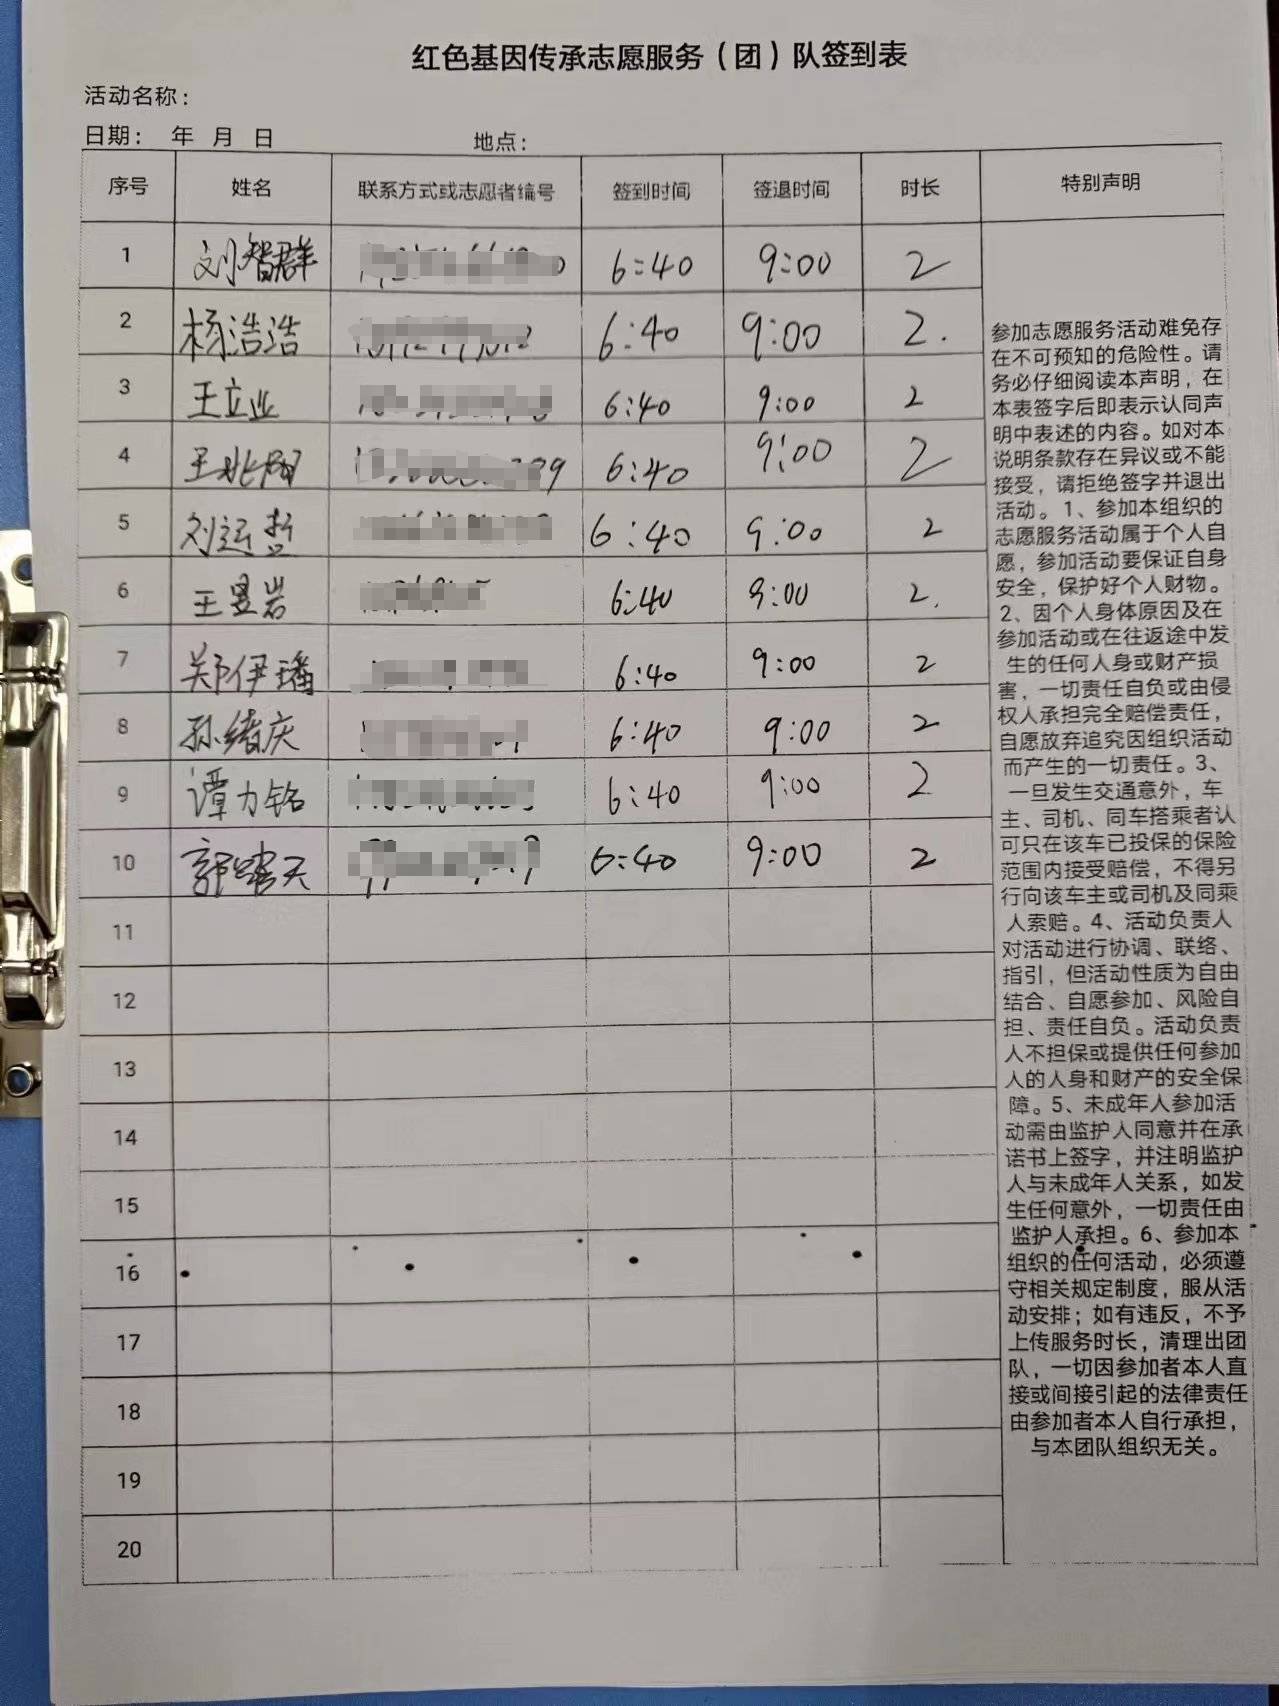 红色基因传承志愿服务（团）队签到表
活动名称：
日期： 年 月 日 地点：
序号 姓名 联系方式或志愿者编号 签到时间 签退时间 时长 特别声明
1 刘智群 6:40 9:00 2
2 杨浩浩 6:40 9:00 2.
3 王立业 6:40 9:00 2
4 6:40 9:00 2
5 刘运哲 6:40 9:00 2
6 王昱岩 6:40 9:00 2.
7 郑伊璠 6:40 9:00 2
8 孙绪庆 6:40 9:00 2
9 谭力铭 6:40 9:00 2
10 6:40 9:00 2
11
12
13
14
15
16
17
18
19
20
参加志愿服务活动难免存
在不可预知的危险性。请
务必仔细阅读本声明，在
本表签字后即表示认同声
明中表述的内容。如对本
说明条款存在异议或不能
接受，请拒绝签字并退出
活动。1、参加本组织的
志愿服务活动属于个人自
愿，参加活动要保证自身
安全，保护好个人财物。
2、因个人身体原因及在
参加活动或在往返途中发
生的任何人身或财产损
害，一切责任自负或由侵
权人承担完全赔偿责任，
自愿放弃追究因组织活动
而产生的一切责任。3、
一旦发生交通意外，车
主、司机、同车搭乘者认
可只在该车已投保的保险
范围内接受赔偿，不得另
行向该车主或司机及同乘
人索赔。4、活动负责人
对活动进行协调、联络、
指引，但活动性质为自由
结合、自愿参加、风险自
担、责任自负。活动负责
人不担保或提供任何参加
人的人身和财产的安全保
障。5、未成年人参加活
动需由监护人同意并在承
诺书上签字，并注明监护
人与未成年人关系，如发
生任何意外，一切责任由
监护人承担。6、参加本
组织的任何活动，必须遵
守相关规定制度，服从活
动安排；如有违反，不予
上传服务时长，清理出团
队，一切因参加者本人直
接或间接引起的法律责任
由参加者本人自行承担，
与本团队组织无关。